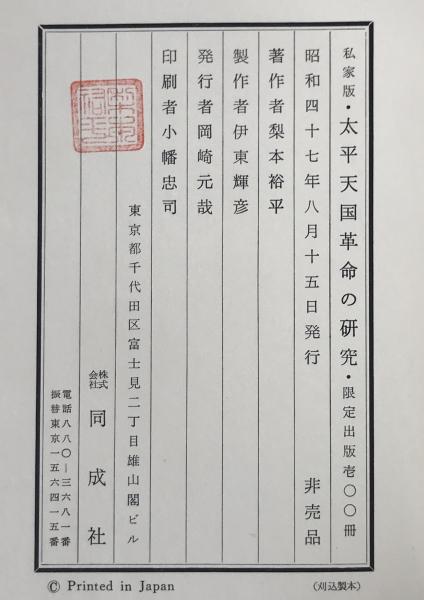 私家版・太平天国革命の研究・限定出版壱〇〇冊
昭和四十七年八月十五日発行 非売品
著作者梨本裕平
製作者伊東輝彦
発行者岡崎元哉
印刷者小幡忠司
東京都千代田区富士見二丁目雄山閣ビル
株式会社 同成社
電話八八〇―三六八一番
振替東京一五六四一五番
© Printed in Japan
(刈込製本)